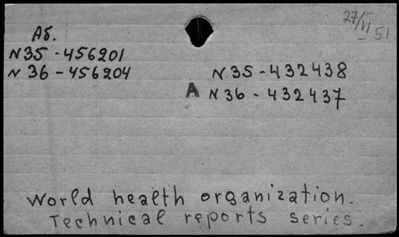 27/VI 51
Аб.
N35-456201
N 36-456204
N 35-432438
А N 36-432437
World health organization.
Technical reports series.